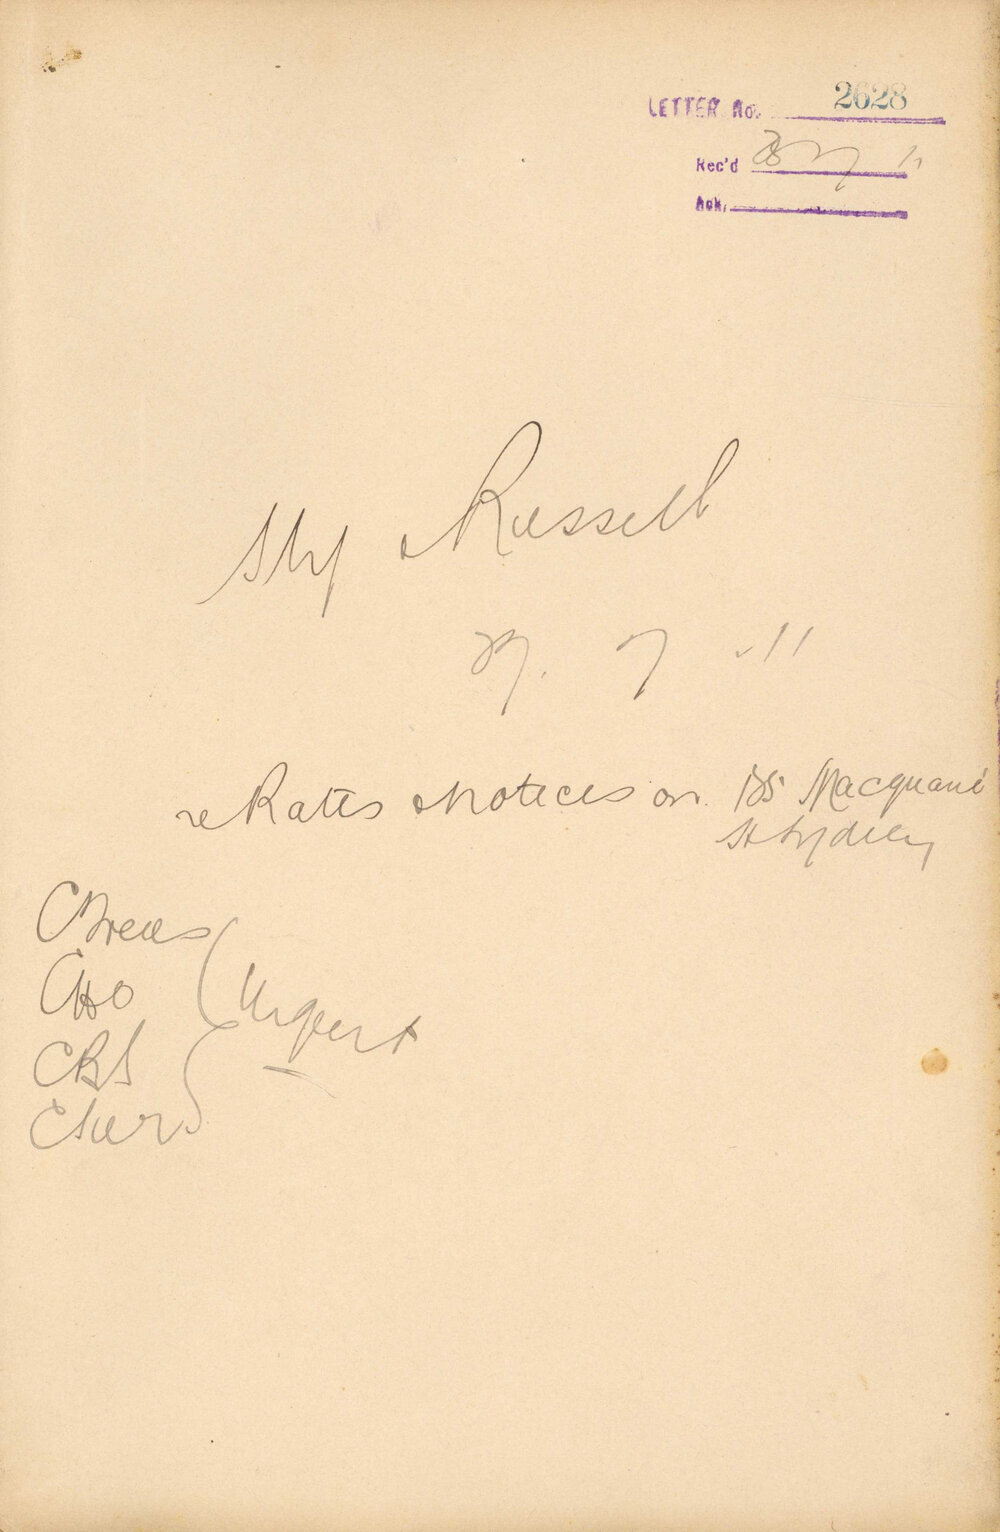 LETTER No. 2628
Rec'd 28 7 11
Ack.
Russell
27. 7 . 11
re Rates Notices on 185 Macquarie
St Sydney
CTreas
CHO
CBS
CSur
Urgent